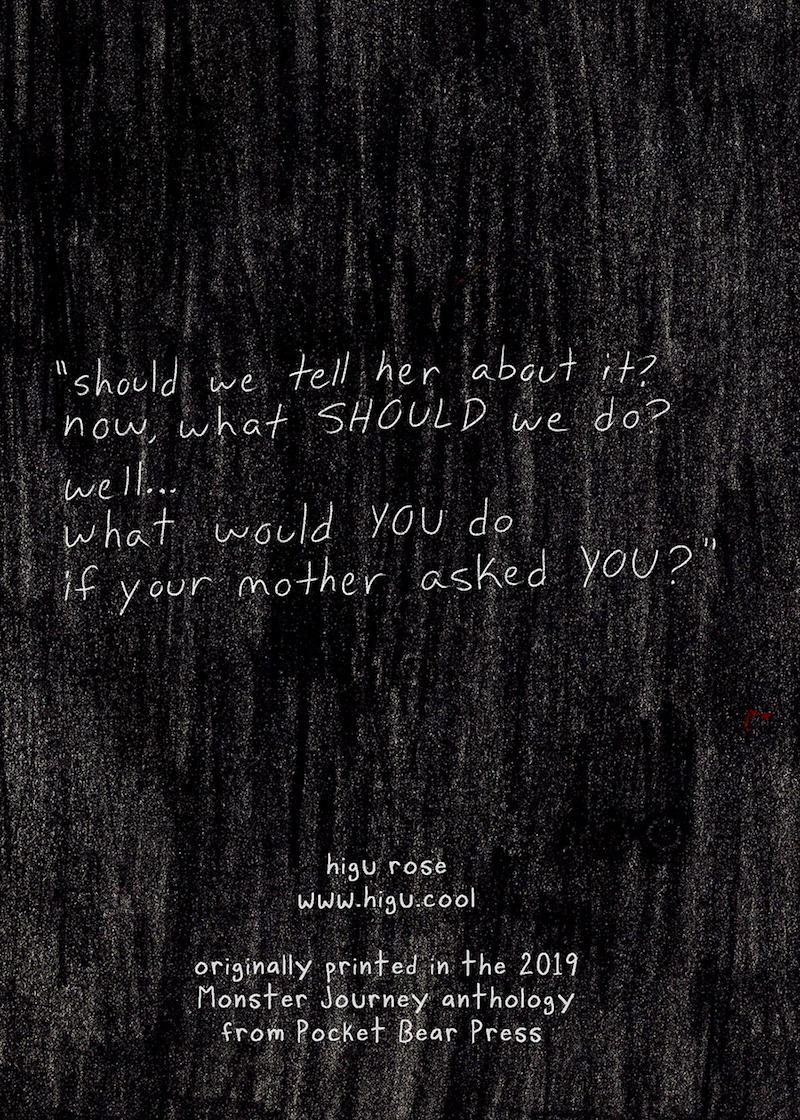 "should we tell her about it?
now, what SHOULD we do?
well...
what would YOU do
if your mother asked YOU?"
higu rose
www.higu.cool
originally printed in the 2019
Monster Journey anthology
from Pocket Bear Press